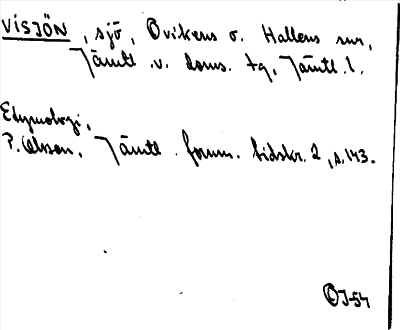 VISJÖN, sjö, Ovikens o. Hallens snr,
Jämtl. v. doms. tg, Jämtl. l.
Etymologi,
P. Olsson, Jämtl. fornm. tidskr. 2, s. 143.
OJ-54